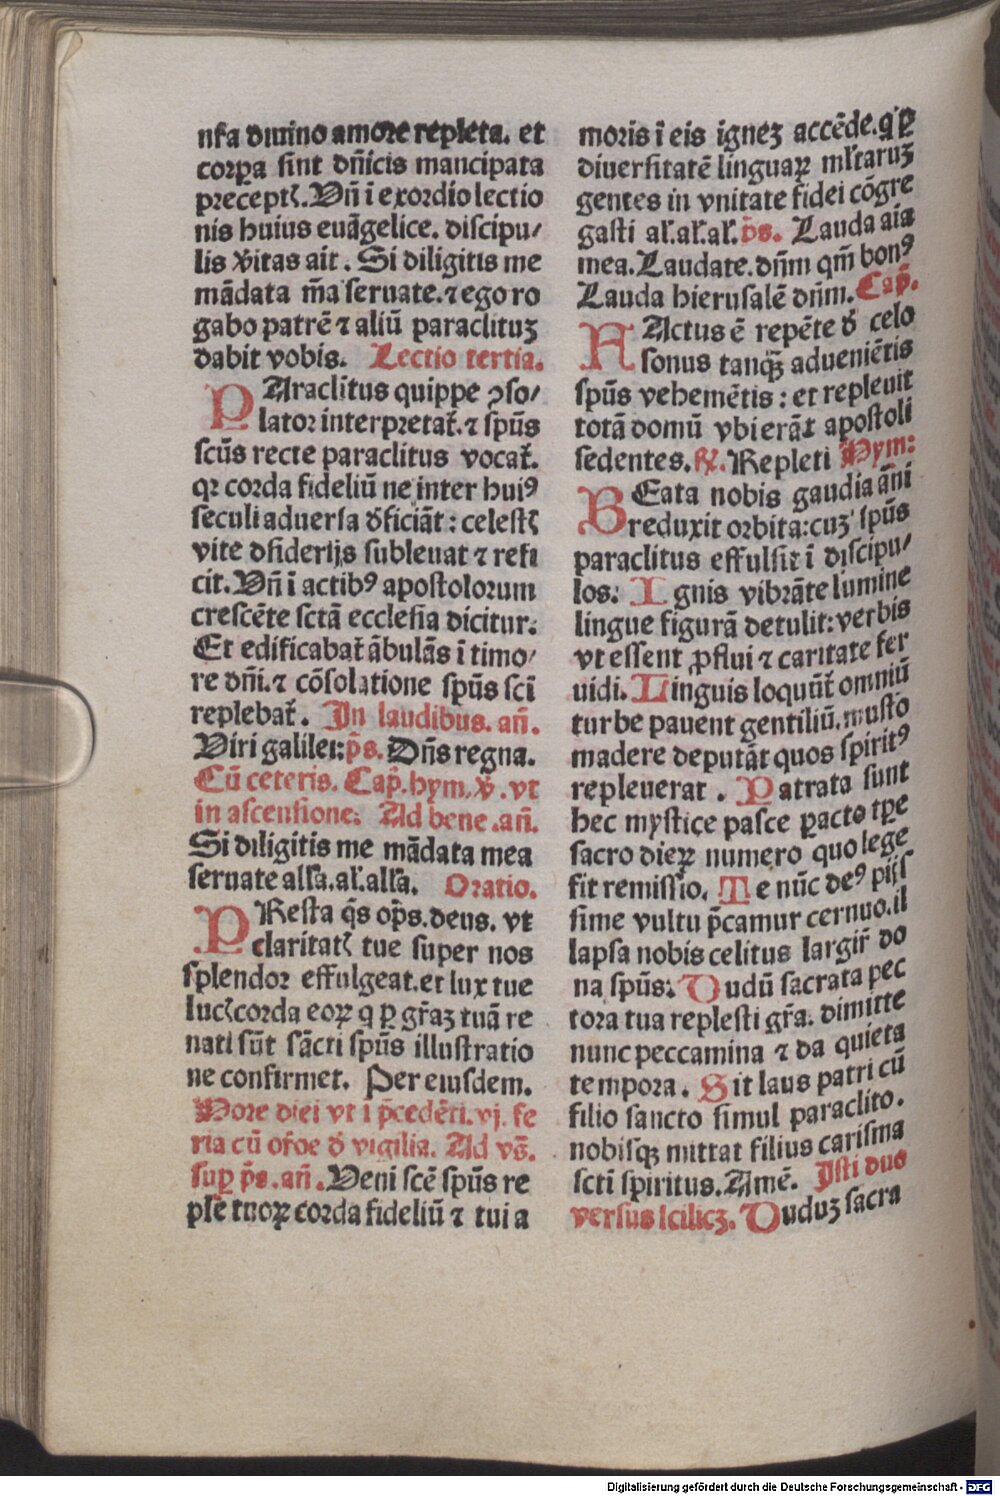 nr̄a diuino amore repleta. et
corꝑa sint dn̄icis mancipata
preceptꝭ. Vn̄ ī exordio lectio
nis huius euāgelice. discipu⸗
lis v̾itas ait. Si diligitis me
mādata m̄a seruate. ⁊ ego ro
gabo patrē ⁊ aliū paraclituʒ
dabit vobis. Lectio tertia.
PAraclitus quippe ꝯso⸗
lator interpretat᷑. ⁊ spūs
scūs recte paraclitus vocat᷑.
qꝛ corda fideliū ne inter huiꝰ
seculi aduersa d̾ficiāt : celestꝭ
vite dsiderijs subleuat ⁊ refi
cit. Vn̄ ī actibꝰ apostolorum
crescēte sctā ecclesia dicitur.
Et edificabat᷑ ābulās ī timo⸗
re dn̄i. ⁊ cōsolatione spūs sci̅
replebat᷑. In laudibus. an̄.
Viri galilei: p̄s. Dn̄s regna.
Cū ceteris. Cap̄. hym. v̾. vt
in ascensione. Ad bene. an̄.
Si diligitis me mādata mea
seruate all'a. al'. all'a. Oratio.
PResta q̄s op̄s. deus. vt
claritatꝭ tue super nos
splendor effulgeat. et lux tue
lucꝭ corda eoꝝ q ꝑ gr̄aʒ tuā re
nati sūt sācti spūs illustratio
ne confirmet. Per eiusdem.
Hore diei vt ī p̄cedēti. vj. fe
ria cū or̄oe d̾ vigilia. Ad vs̄.
suꝑ p̄s. an̄. Veni scē spūs re
ple tuoꝝ corda fideliū ⁊ tui a
moris ī eis igneʒ accēde. q' ꝑ
diuersitatē linguaꝝ ml'taruʒ
gentes in vnitate fidei cōgre
gasti al'. al'. al'. p̄s. Lauda aīa
mea. Laudate. dn̄m qm̄ bonꝰ
Lauda hierusalē dn̄m. Cap̄.
FActus ē repēte d̾ celo
sonus tanqꝫ adueniētis
spūs vehemētis : et repleuit
totā domū vbi erāt apostoli
sedentes. ℟. Repleti Hym:
BEata nobis gaudia āni
reduxit orbita: cuʒ spūs
paraclitus effulsit ī discipu⸗
los. Ignis vibrāte lumine
lingue figurā detulit: verbis
vt essent ꝓflui ⁊ caritate fer
uidi. Linguis loquūt᷑ omniū
turbe pauent gentiliū. musto
madere deputāt quos spiritꝰ
repleuerat. Patrata sunt
hec mystice pasce ꝑacto tꝑe
sacro dieꝝ numero quo lege
fit remissio. Te nūc deꝰ pijs
sime vultu p̄camur cernuo. il
lapsa nobis celitus largir̄ do
na spūs. Dudū sacrata pec
tora tua replesti gr̄a. dimitte
nunc peccamina ⁊ da quieta
tempora. Sit laus patri cū
filio sancto simul paraclito.
nobisqꝫ mittat filius carisma
scti spiritus. Amē. Isti duo
versus scilicʒ. Duduʒ sacra
Digitalisierung gefördert durch die Deutsche Forschungsgemeinschaft - DFG